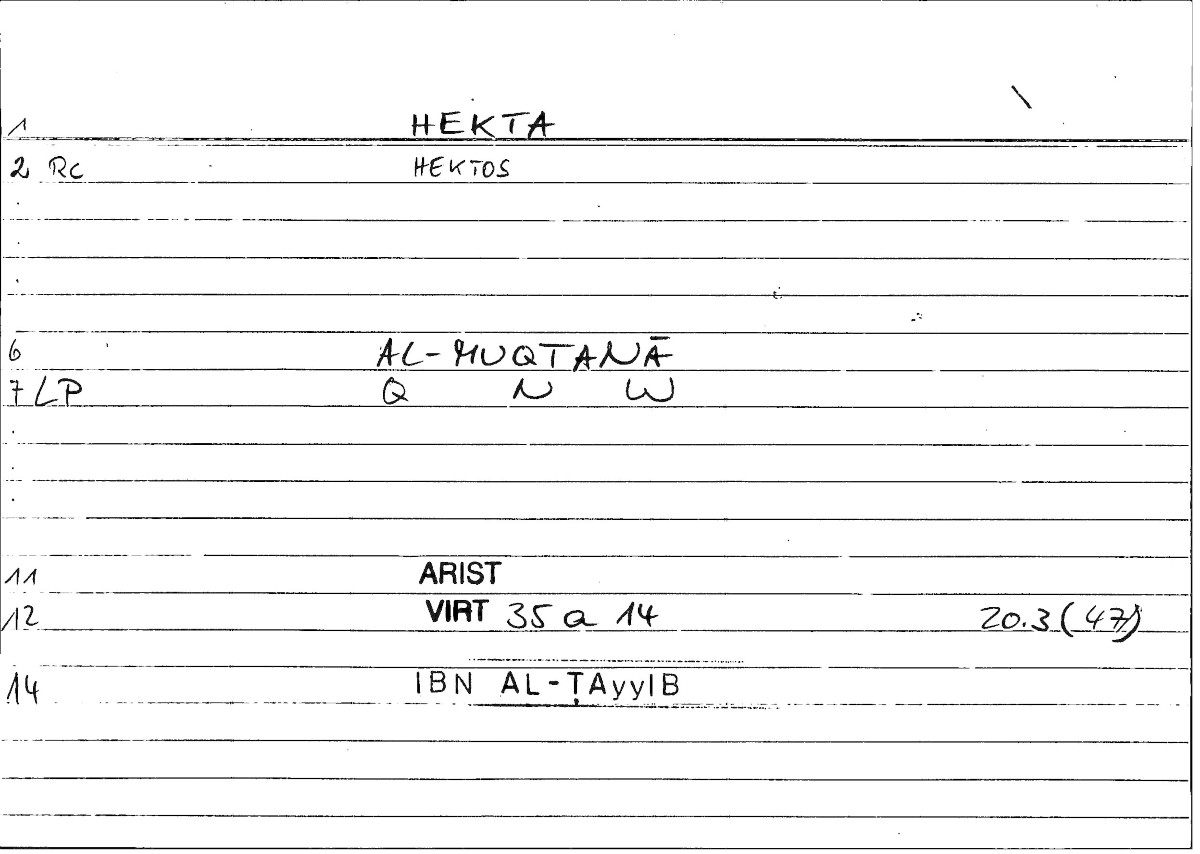 1 HEKTA
2 Rc HEKTOS
6 AL-MUQTANĀ
7 LP Q N W
11 ARIST
12 VIRT 35 a 14 20.3 (47)
14 IBN AL-ṬAyyIB